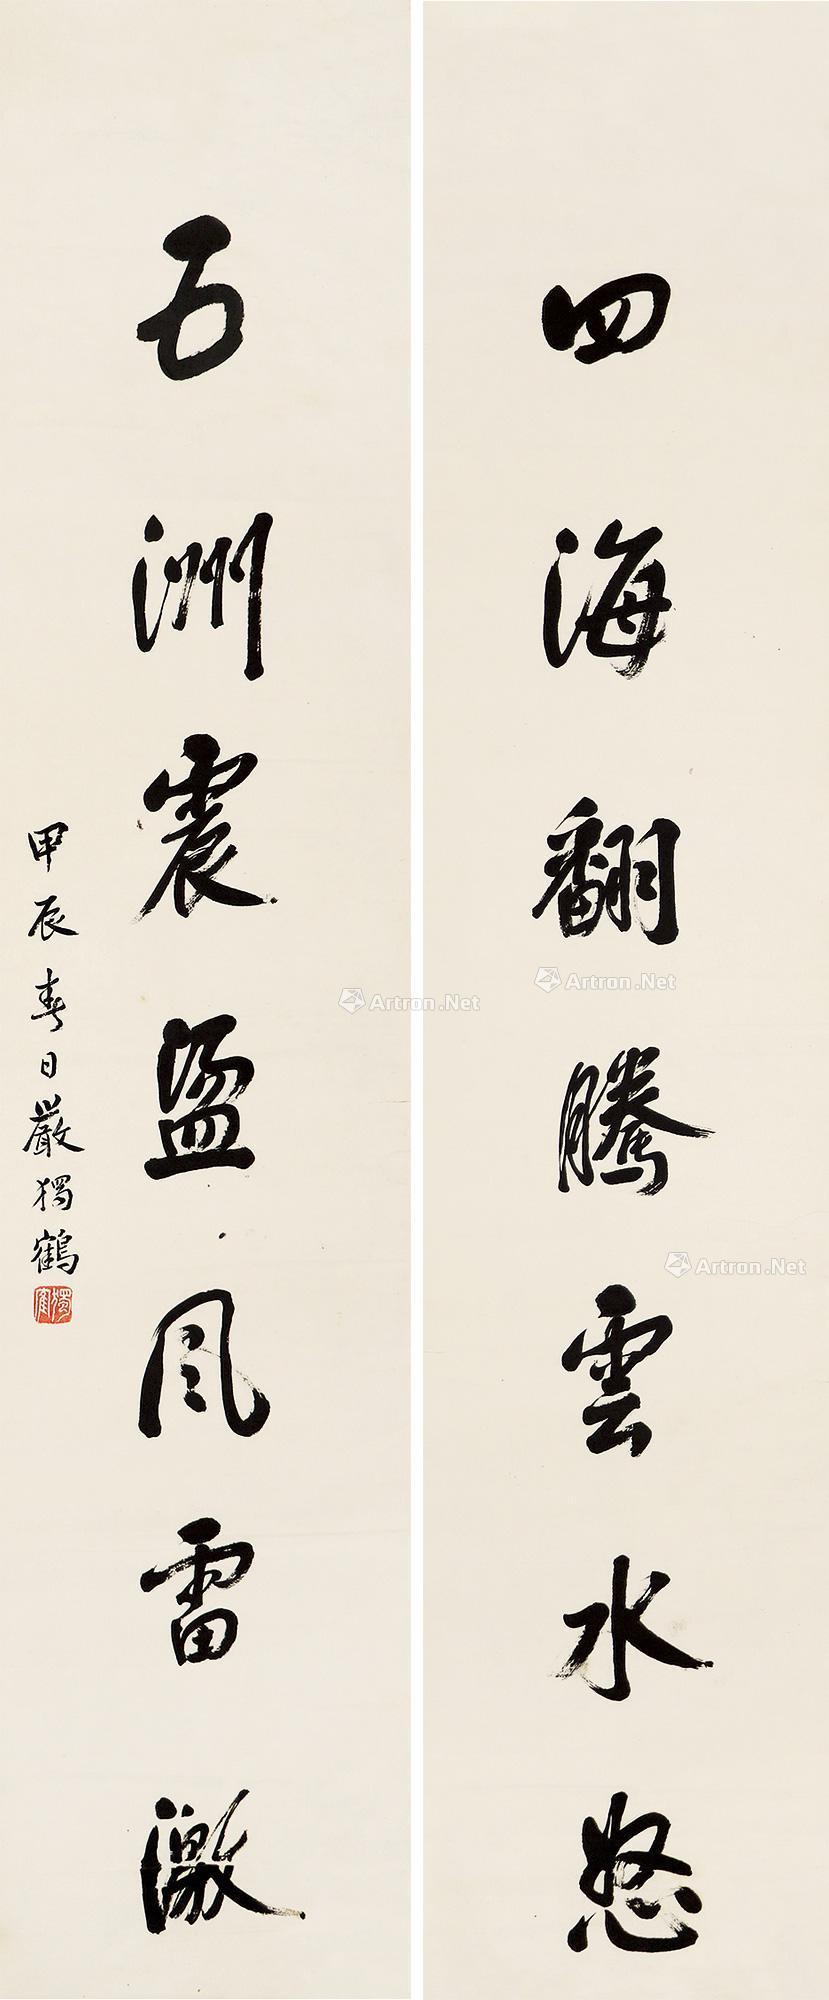 四海翻騰雲水怒
五洲震盪风雷激
甲辰春日嚴獨鶴
獨鶴
Artron.Net
Artron.Net
Artron.Net